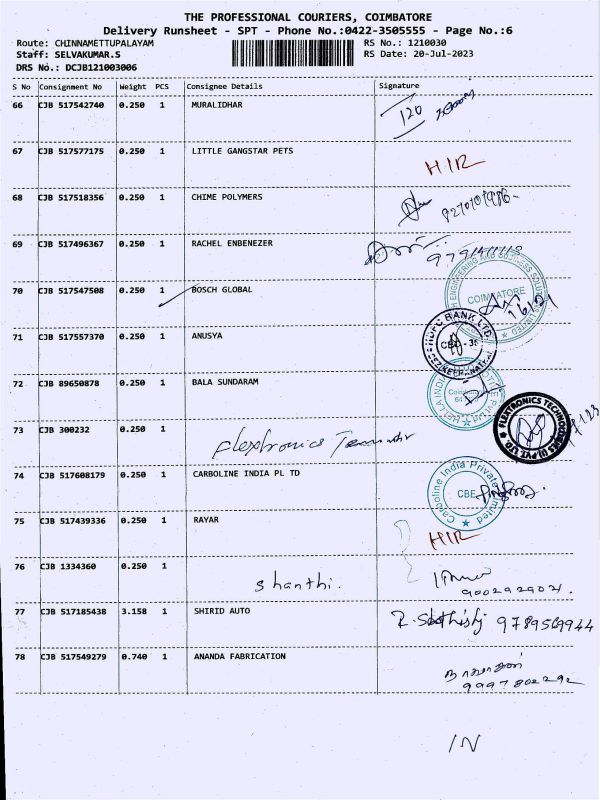 THE PROFESSIONAL COURIERS, COIMBATORE
Delivery Runsheet - SPT - Phone No.:0422-3505555 - Page No.:6
Route: CHINNAMETTUPALAYAM RS No.: 1210030
Staff: SELVAKUMAR.S RS Date: 20-Jul-2023
DRS No.: DCJB121003006
S No Consignment No Weight PCS Consignee Details Signature
66 CJB 517542740 0.250 1 MURALIDHAR 120
67 CJB 517577175 0.250 1 LITTLE GANGSTAR PETS HIR
68 CJB 517518356 0.250 1 CHIME POLYMERS
69 CJB 517496367 0.250 1 RACHEL ENBENEZER
70 CJB 517547508 0.250 1 BOSCH GLOBAL COIMBATORE
71 CJB 517557370 0.250 1 ANUSYA HDFC BANK LTD
72 CJB 89650878 0.250 1 BALA SUNDARAM
73 CJB 300232 0.250 1 Flextronics FLEXTRONICS TECHNOLOGIES (I) PVT. LTD.
74 CJB 517608179 0.250 1 CARBOLINE INDIA PL TD Carboline India Private Limited CBE
75 CJB 517439336 0.250 1 RAYAR HIR
76 CJB 1334360 0.250 1 Shanthi. 9002929021.
77 CJB 517185438 3.158 1 SHIRID AUTO 9789569944
78 CJB 517549279 0.740 1 ANANDA FABRICATION
9997802292
IN